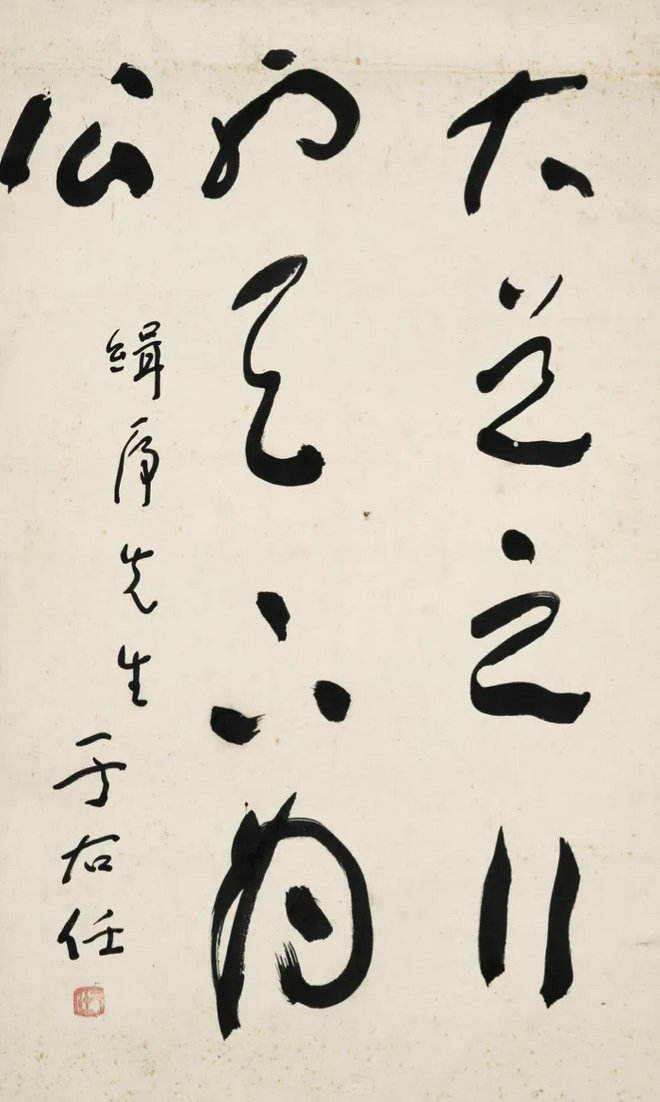 大道之行
也天下為
公
緝先生
于右任